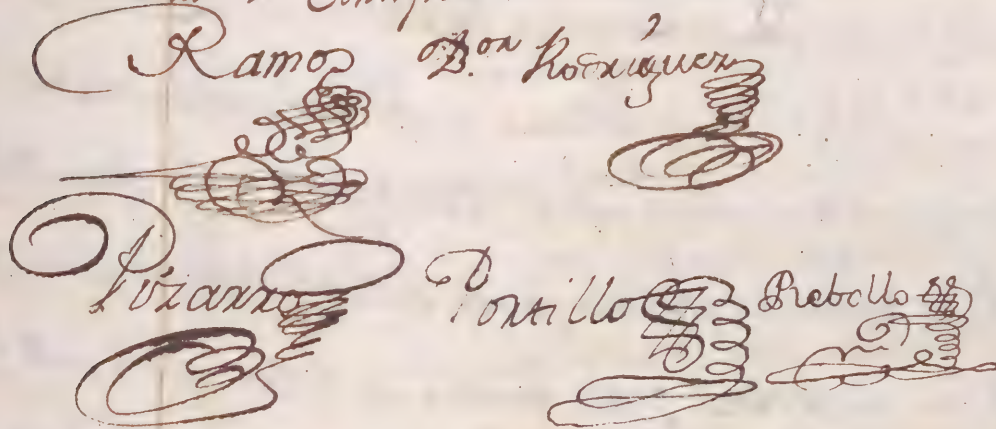 Ramo D.on Rodriguez
Pizarro Portillo Rebollo